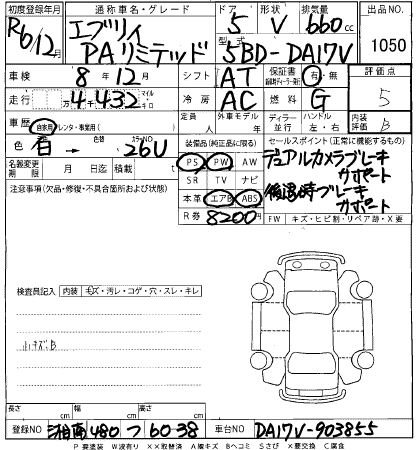 初度登録年月 通称車名・グレード ドア 形状 排気量 出品NO.
R6/12月 エブリイ 5 V 660cc
型式
PAリミテッド 5BD-DA17V 1050
車検 8年12月 シフト AT 保証書 有・無 評価点
走行 4,432 万 千 マイル キロ 冷房 AC 燃料 G 5
車歴 自家用・レンタ・事業用( ) 定員 人 外車モデル 年 ディーラー 並行 ハンドル 左・右 内装評価 B
色 白 → 色替 カラーNO 26U
装備品(純正品に限る) セールスポイント(正常に機能するもの)
名義変更期限 月 日 積載 PS PW AW デュアルカメラブレーキ
サポート
注意事項(欠品・修復・不具合箇所及び状態) SR TV ナビ
本革 エアB ABS 後退時ブレーキ
サポート
R券 8200円 FW キズ・ヒビ割・リペア跡・X要
検査員記入 内装 キズ・汚レ・コゲ・穴・スレ・キレ
小キズB
長さ cm 幅 cm 高さ cm
登録NO 湘南 480 つ 60-38 車台NO DA17V-903855
P 要塗装 W波有り ××取替済 A線キズ Bヘコミ Sさび ×要交換 C腐食